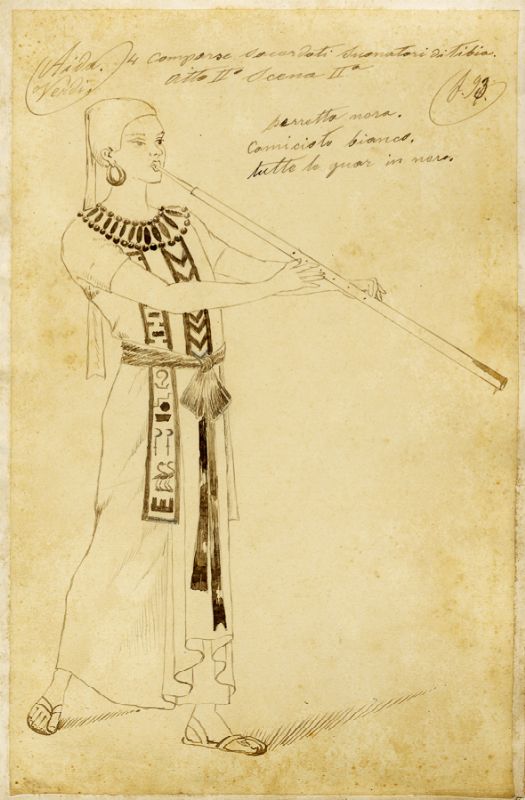 Aida.
Verdi
4 comparse sacerdoti suonatori di tibia.
Atto IIº Scena IIª
berretto nero.
Camicioto bianco.
tutte le guar in nero.